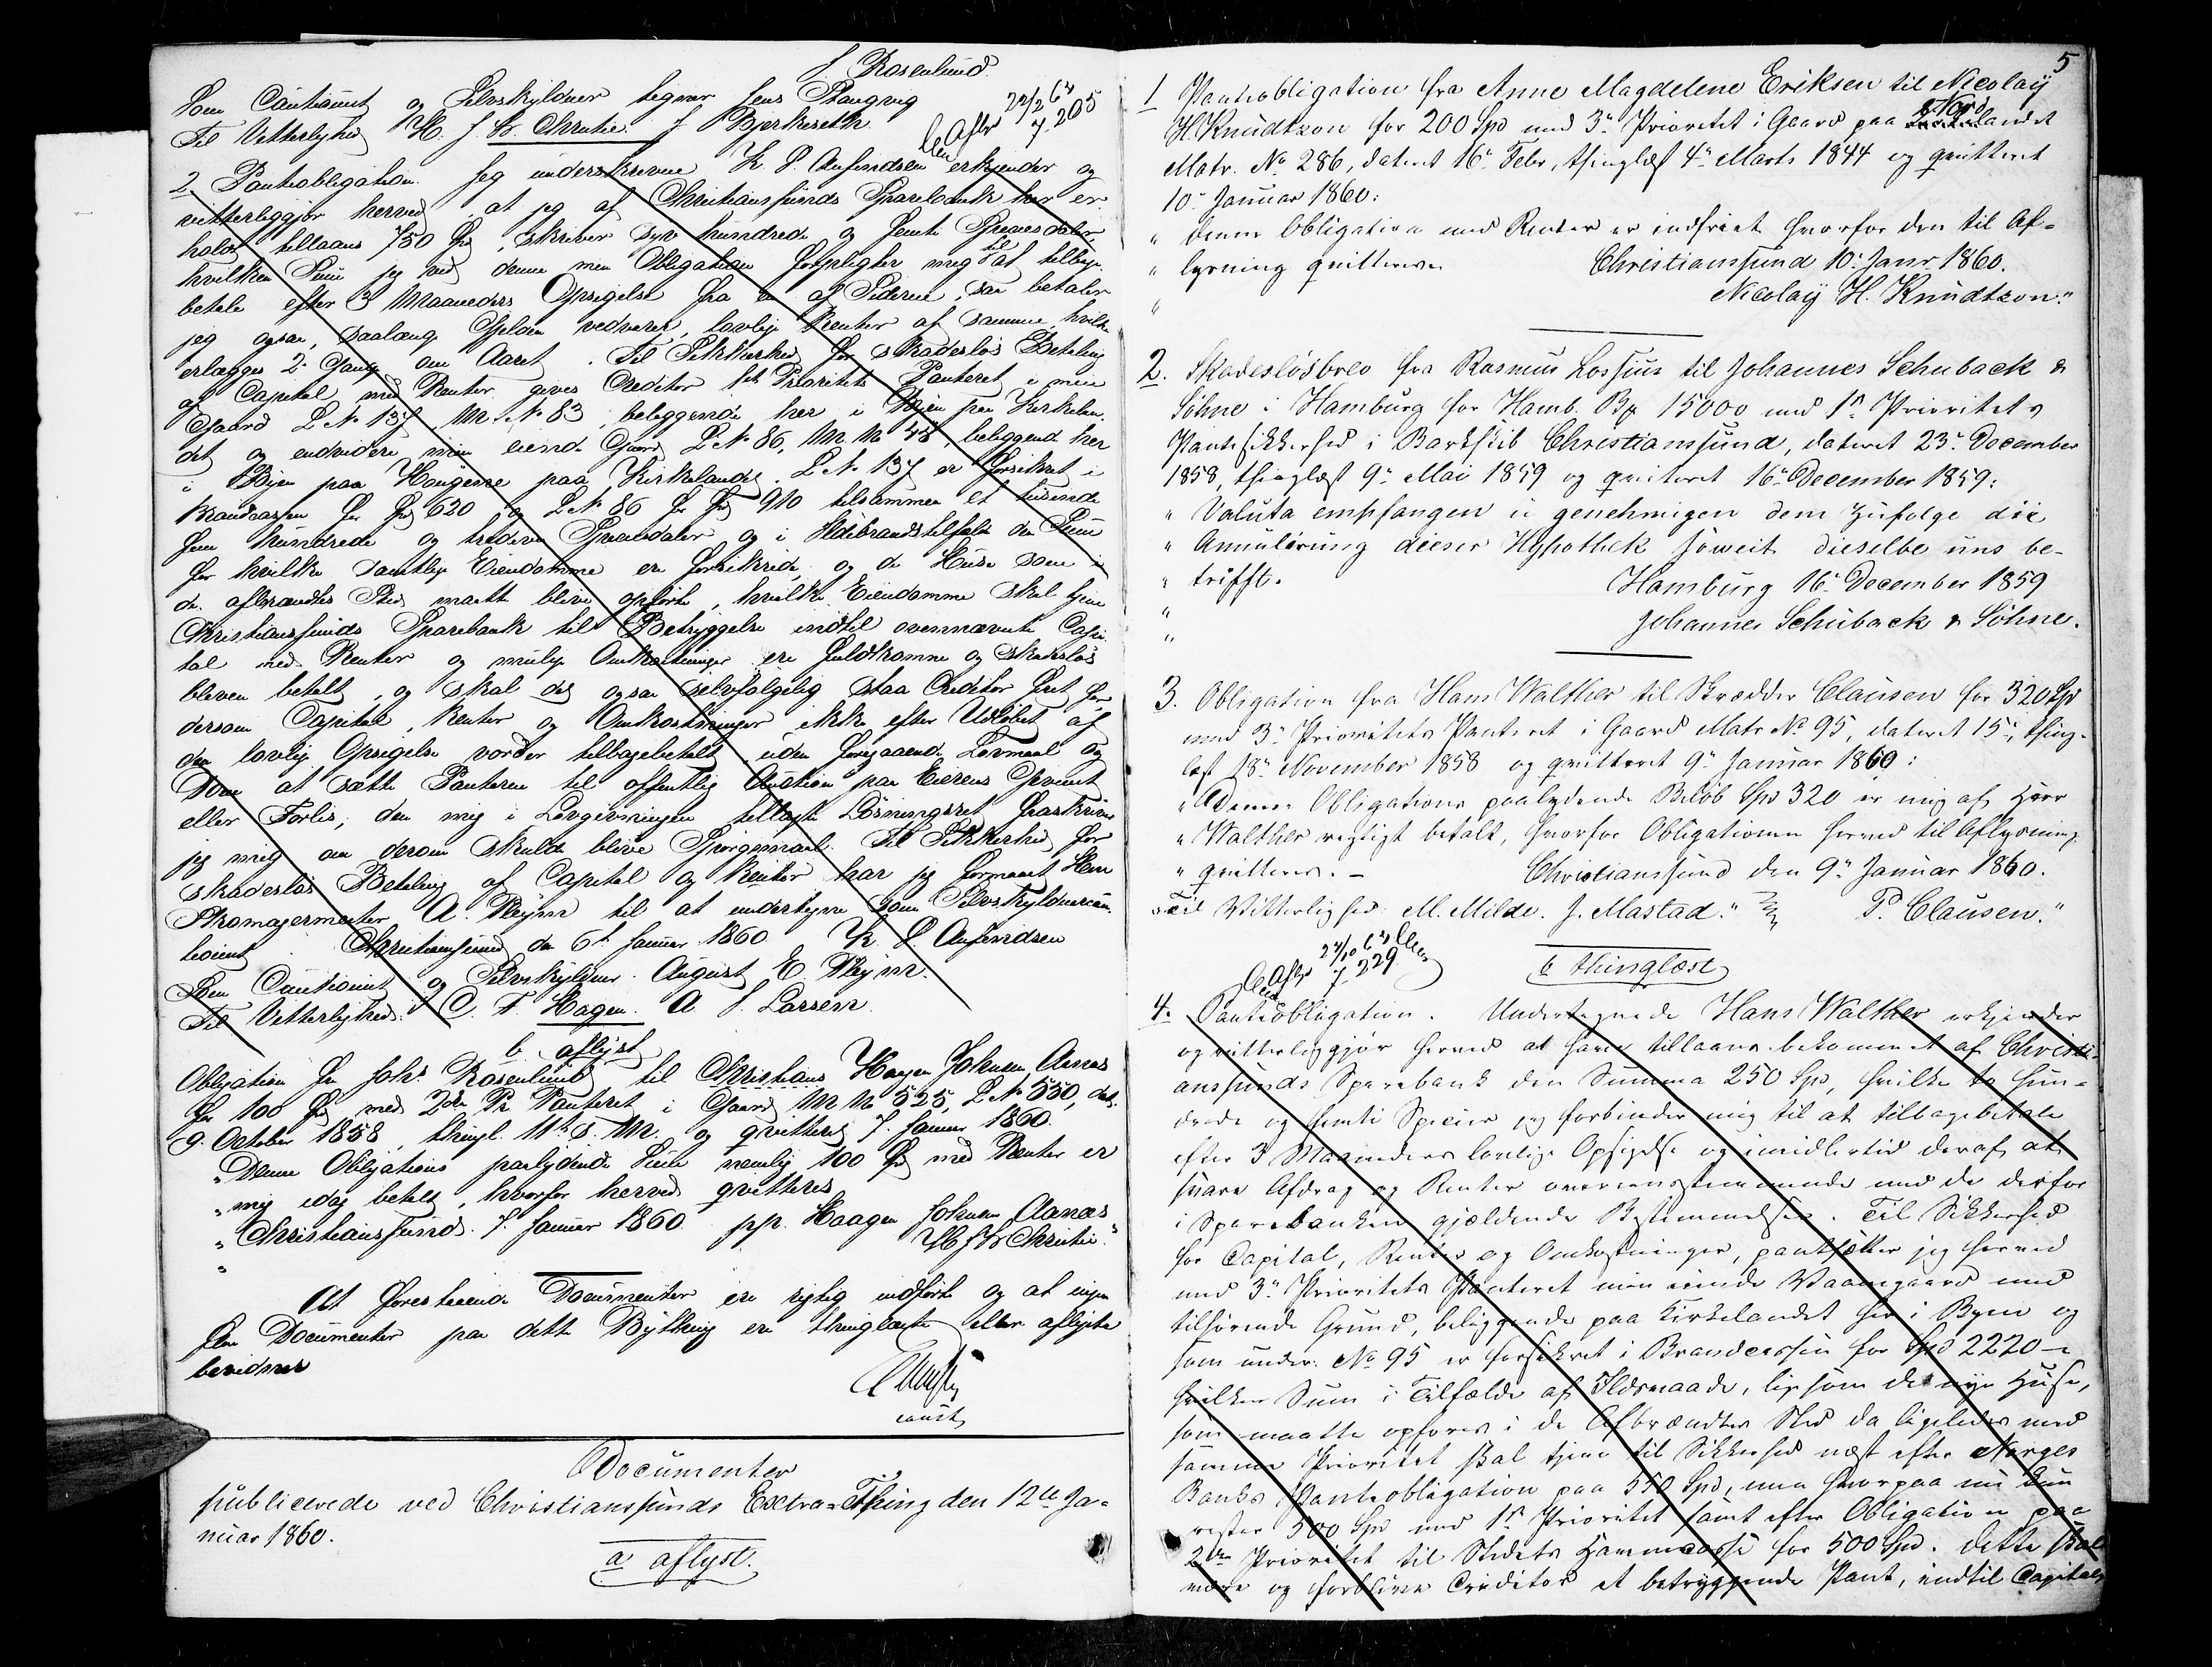 J. Rosenlund
Som Cautionist og Selvskyldner tegner Jens Stangvig
Til Vitterlighed H. J. B. Christie. J. Bjerkeseth.
22/2 6
Afl 7-205
2 Pantobligation. Jeg underskrevne K. P. Anfindsen erkjender og
vitterliggjør herved, at jeg af Christianssunds Sparebank har er
holdt tillaans 750 Spd, skriver syv hundrede og femti Speciesdaler,
hvilken Sum jeg ved denne min Obligation forpligter mig til at tilbage
betale efter 3 Maaneders Opsigelse fra en af Siderne, saa betaler
jeg ogsaa, saalænge Gjelden vedvarer, lovlige Renter af samme, hvilke
erlægges 2 Gange om Aaret. Til Sikkerhed for skadesløs Betaling
af Capital med Renter gives Creditor 1ste Prioritets Panteret i min
Gaard L. No 137, M. No 83, beliggende her i Byen paa Kirkelan
det og endvidere min eiende Gaard L No 86, M. No 48, beliggende her
i Byen paa Haugene paa Kirkelandet. L. No 137 er forsikret i
Brandcassen for Spd 620 og L No 86 for Spd 910 tilsammen et tusinde
fem hundrede og tredive Speciedaler og i Ildebrandstilfælde den Sum
for hvilke samtlige Eiendomme ere forsikrede, og de Huse som i
de afbrændtes Sted maatte blive opførte, hvilke Eiendomme skal tjene
Christianssunds Sparebank til Betryggelse indtil ovennævnte Capi
tal med Renter og mulige Omkostninger ere fuldkomne og skadesløs
bleven betalt, og skal det ogsaa selvfølgelig staa Creditor frit for
dersom Capital, Renter og Omkostninger ikke efter Udløbet af
den lovlige Opsigelse vorder tilbagebetalt uden foregaaende Lovmaal og
Dom at sætte Panterne til offentlig Auction paa Eierens Gevinst
eller Forlis; den mig i Lovgivningen tillagte Løsningsret fraskriver
jeg mig om derom skulde blive Spørgsmaal. Til Sikkerhed for
skadesløs Betaling af Capital og Renter har jeg formaaet Herr
Skomagermester A. Weijm til at undertegne som Selvskyldnercau
tionist. Christianssund den 6te Januar 1860 K. P. Anfindsen
Som Cautionist og Selvskyldner August E. Weijm.
Til Vitterlighed: C. F. Hagen. A. J. Larsen.
b aflyst
Obligation fra Johs Rosenlund til Christians Haagen Johnsen Aanæs
for 100 Spd med 2den Pr Panteret i Gaard M No 525, L No 550, dat.
9. October 1858, thingl. 11te d. M. og qvitteret 7. Januar 1860.
" Denne Obligations paalydende Sum nemlig 100 Spd med Renter er
" mig idag betalt, hvorfor herved qvitteres
" Christianssund. 7. Januar 1860. pp. Haagen Johnsen Aanæs
" H J B Christie."
At forestaaende Documenter ere rigtig indførte og at ingen
flere Documenter paa dette Bytthing ere thinglæste eller aflyste
bevidnes
const
Documenter
publicerede ved Christianssunds Extra-Thing den 12te Ja-
nuar 1860.
a aflyst.
5
1 Pantobligation fra Anne Magdelene Eriksen til Nicolaÿ
H. Knudtzon for 200 Spd med 3die Prioritet i Gaard paa Nordlandet
Matr. No 286, dateret 16de Febr, thinglæst 4de Marts 1844 og qvitteret
10de Januar 1860:
" Denne Obligation med Renter er indfriet hvorfor den til Af-
" lysning qvitteres. Christianssund 10de Janr 1860.
" Nicolaÿ H. Knudtzon."
2. Skadesløsbrev fra Rasmus Lossius til Johannes Schuback &
Söhne i Hamburg for Hamb. Bp 15000 med 1ste Prioritets
Pantesikkerhed i Barkskib Christianssund, dateret 23de December
1858, thinglæst 9de Mai 1859 og qvitteret 16de December 1859:
" Valuta empfangen u genehmigen dem zufolge die
" Annulirung dieser Hypothek soweit dieselbe uns be-
" trifft. Hamburg 16de December 1859
" Johannes Schuback & Söhne.
"
3. Obligation fra Hans Walther til Skrædder Clausen for 320 Spd
med 3die Prioritets Panteret i Gaard Matr No 95, dateret 15de, thing-
læst 18de November 1858 og qvitteret 9de Januar 1860:
" Denne Obligations paalydende Beløb Spd 320 er mig af Herr
" Walther rigtigt betalt, hvorfor Obligationen herved til Aflysning
" qvitteres. - Christianssund den 9de Januar 1860.
Til Vitterlighed M. Milde. J. Mastad." P. Clausen."
7-229
b thinglæst
4. Pantobligation. Undertegnede Hans Walther erkjender
og vitterliggjør herved at have tillaans bekommet af Christi-
anssunds Sparebank den Summa 250 Spd, hvilke to hun-
drede og femti Species jeg forbinder mig til at tilbagebetale
efter 3 Maaneders lovlige Opsigelse og imidlertid deraf at
svare Afdrag og Renter overeensstemmende med de derfor
i Sparebanken gjældende Bestemmelser. Til Sikkerhed
for Capital, Renter og Omkostninger, pantsætter jeg herved
med 3die Prioritets Panteret min eiende Vaaningsgaard med
tilhørende Grund, beliggende paa Kirkelandet her i Byen og
som under No 95 er forsikret i Brandcassen for Spd 2220 -
hvilken Sum i Tilfælde af Ildsvaade, ligesom de nye Huse,
som maatte opføres i de Afbrændtes Sted da ligeledes med
samme Prioritet skal tjene til Sikkerhed næst efter Norges
Banks Pantobligation paa 550 Spd, men hvorpaa nu kun
rester 500 Spd med 1ste Prioritet samt efter Obligation paa
2den Prioritet til Stedets Havnecasse for 500 Spd. Dette skal
være og forblive Creditor et betryggende Pant, indtil Capitalen